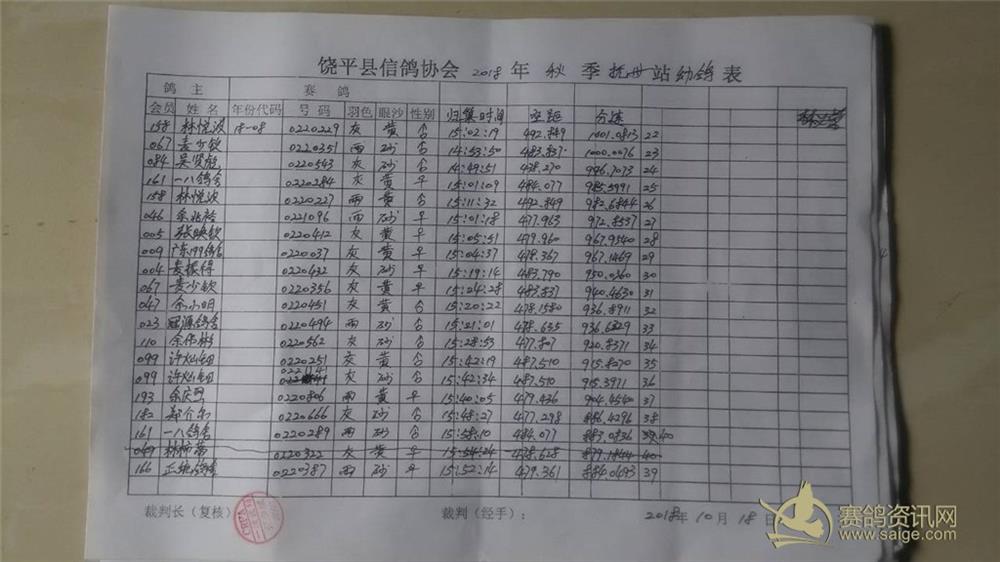 饶平县信鸽协会 2018 年 秋 季 抚州 站 幼鸽 表
鸽 主 赛 鸽
会员 姓 名 年份代码 号 码 羽色 眼沙 性别 归巢时间 空距 分速
158 林悦波 18-08 0220229 灰 黄 15:02:19 492.849 1001.0813 22
067 0220351 雨 砂 14:53:50 483.837 1000.0076 23
084 0220543 灰 砂 14:49:51 438.270 996.7073 24
161 一八鸽舍 0220284 灰 黄 15:01:09 484.077 985.5991 25
158 林悦波 0220227 雨 黄 15:11:32 492.849 982.6844 26
046 0221096 雨 砂 15:01:18 477.963 972.8537 27
005 张映钦 0220412 灰 黄 15:05:51 479.960 967.9540 28
009 0220037 灰 黄 15:04:37 478.367 967.1469 29
004 0220432 灰 砂 15:19:14 483.790 950.0360 30
067 0220356 灰 黄 15:24:28 483.837 940.4630 31
047 余小明 0220451 灰 黄 15:20:22 478.1580 936.8911 32
023 0220494 雨 砂 15:21:01 478.635 936.6329 33
110 余伟彬 0220562 灰 砂 15:28:53 477.807 920.8371 34
099 0220251 灰 黄 15:42:19 487.510 915.8270 35
099 灰 砂 15:42:34 487.510 915.3971 36
193 0220806 雨 黄 15:40:05 479.436 904.4540 37
182 0220666 灰 砂 15:48:27 477.298 886.4296 38
161 一八鸽舍 0220289 雨 砂 15:58:10 484.077 883.0836 40
049 0220322 灰 黄 15:54:24 478.628 879.1844 40
166 0220387 雨 砂 15:52:14 479.361 884.0493 39
裁判长（复核） 裁判（经手）： 2018年 10 月 18 日
赛鸽资讯网
www.saige.com